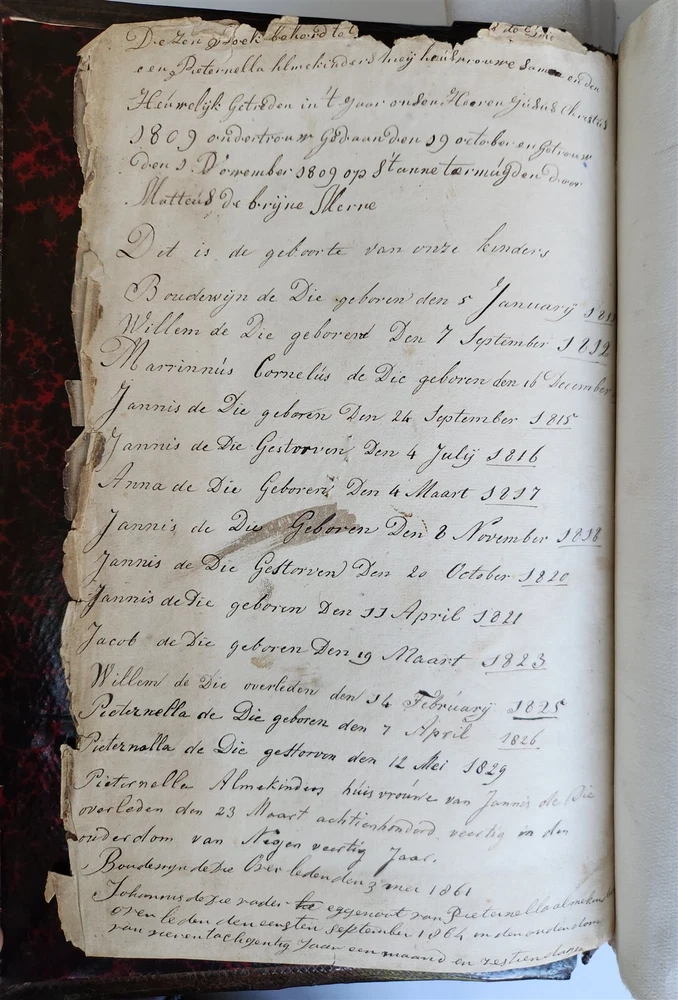 Dezen Boek behoord to de Die
en Pieternella Almekinders mijn huisvrouwe samen en den
Heuwelijk Getreden in't Jaar onsen Heeren Jesus Christus
1809 ondertrouw Gedaan den 19 october en Getrouw
den 1 November 1809 op St annetermuijden door
Matteus de brijne Merre
Dit is de geboorte van onze kinders
Boudewijn de Die geboren den 5 Januarij 181
Willem de Die geboren Den 7 September 1812
Marinnus Cornelus de Die geboren den 16 December
Jannis de Die geboren Den 24 September 1815
Jannis de Die Gestorven Den 4 Julij 1816
Anna de Die Geboren Den 4 Maart 1817
Jannis de Die Geboren Den 8 November 1818
Jannis de Die Gestorven Den 20 October 1820
Jannis de Die geboren Den 11 April 1821
Jacob de Die geboren Den 19 Maart 1823
Willem de Die overleden den 14 Februarij 1825
Pieternella de Die geboren den 7 April 1826
Pieternella de Die gestorven den 12 Mei 1829
Pieternella Almekinders huisvrouwe van Jannis de Die
overleden den 23 Maart achtienhonderd veertig in den
ouderdom van Negen veertig Jaar.
Boudewijn de Die Overleden den 3 mei 1861
Johannis de Die vader eggenoot van Pieternella almekinders
overleden den eersten September 1864 in den ouderdom
van zeventachgentig Jaar een maand en zestien dagen